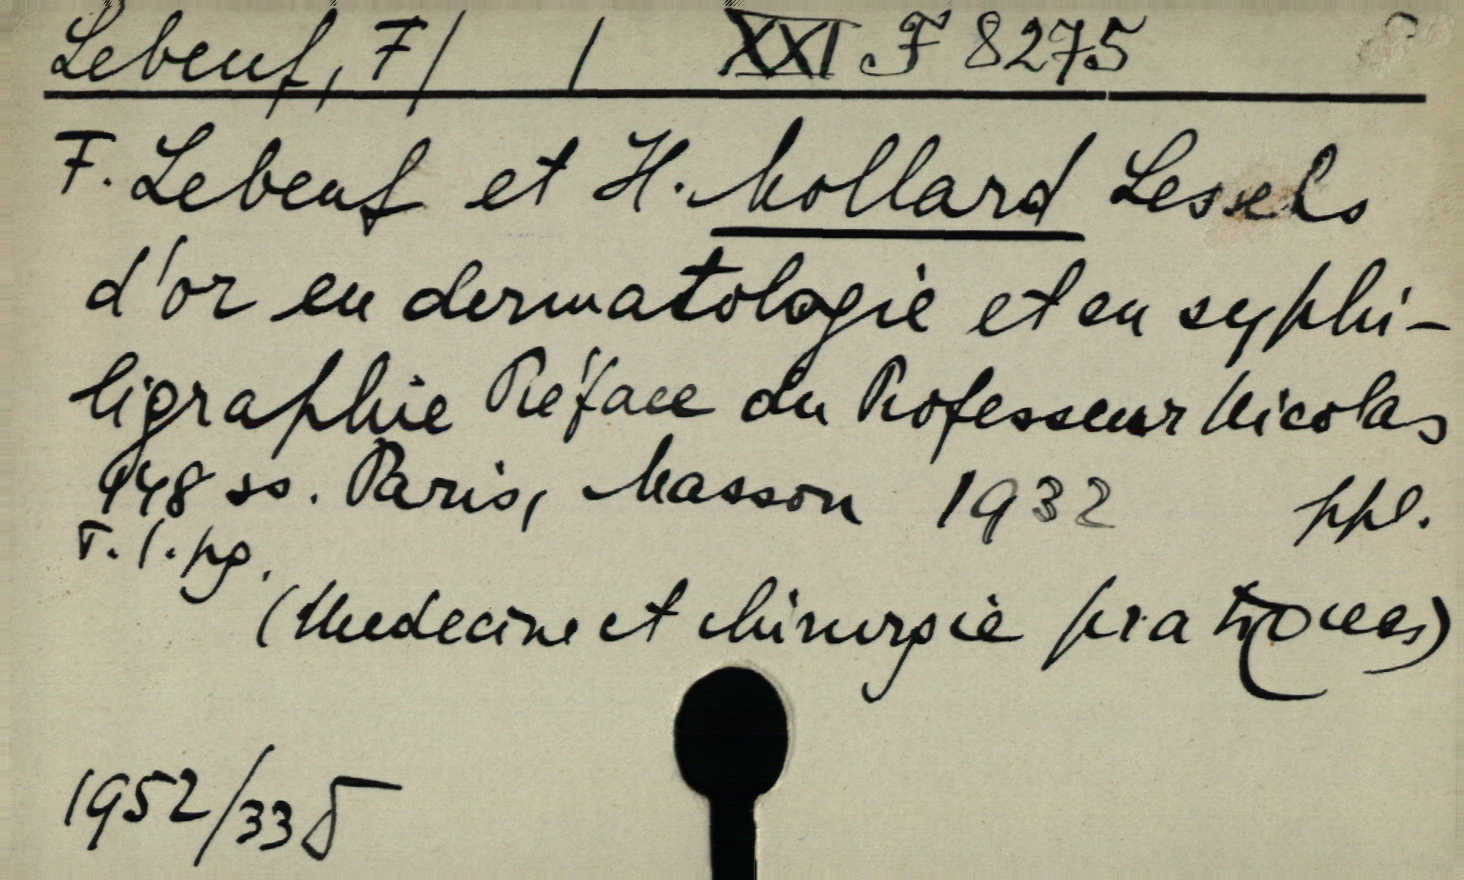 Lebeuf, F/ / XXI F 8275
F. Lebeuf et H. Mollard Les sels
d'or en dermatologie et en syphi-
ligraphie Préface du Professeur Nicolas
148 ss. Paris, Masson 1932 ppl.
T. l. pg.
(Medecine et chirurgie pratiques)
1952/335